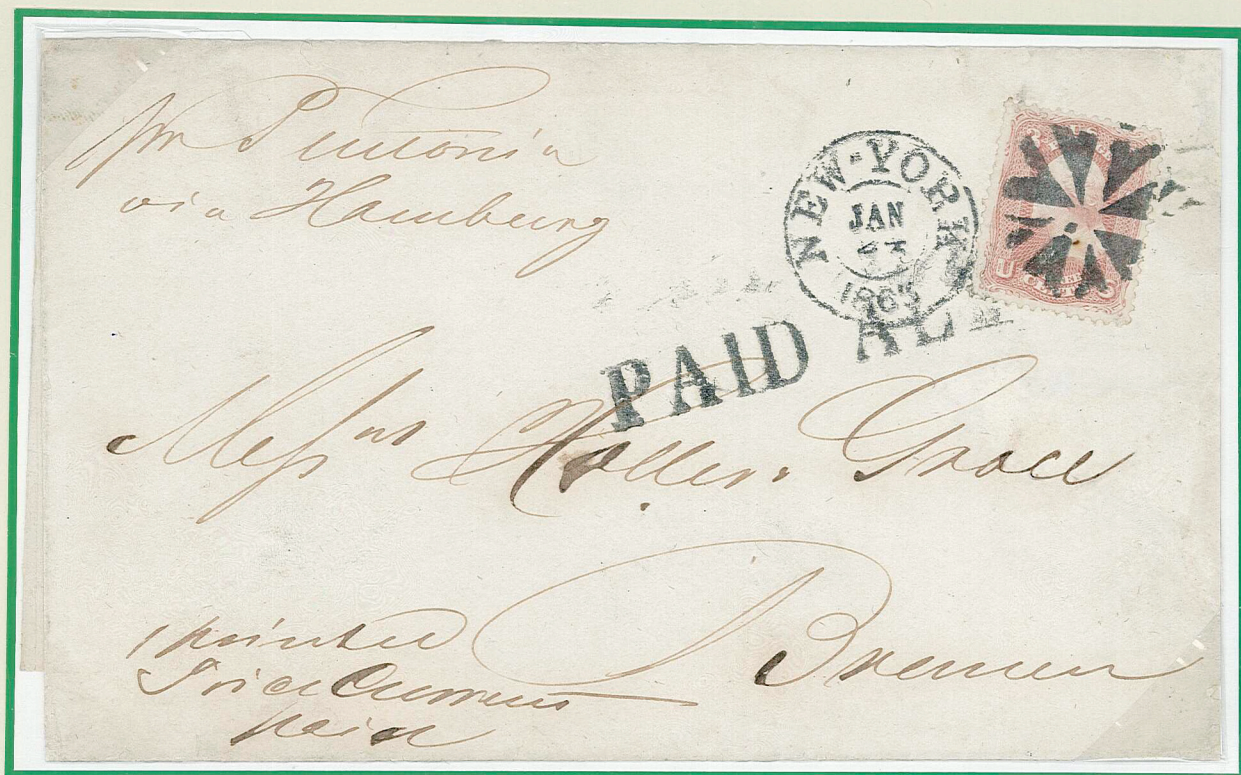 pr Teutonia
via Hamburg
NEW-YORK
JAN
1865
PAID ALL
U S
Messrs Grace
Bremen
1 printed
Price Current
paid